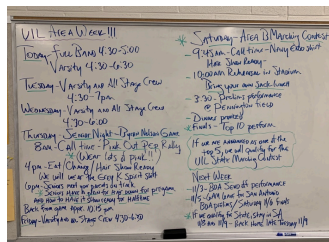 UIL Area Week!!!
Today- Full Band 4:30-5:00
Varsity 4:30-6:30
Tuesday- Varsity and All Stage Crew
4:30-7pm
Wednesday- Varsity and All Stage Crew
4:30-6:00
Thursday- Senior Night- Byron Nelson Game
8am- Call time- Pink Out Pep Rally
*(Wear lots of pink!!)
4pm- Eat/Change/Hair Show Ready
We will wear the Grey K Spirit Stuff
6pm- Seniors meet your parents on track
Back from game Appx. 10:15 pm
Friday- Varsity and All Stage Crew 4:30-6:30
* Saturday- Area B Marching Contest
- 9:45am- Call time- Navy Expo shirt
Hair Show Ready
- 10:00am Rehearsal in Stadium
Bring your own Sack-lunch
- 3:30- Prelims performance
@ Pennington field
- Dinner provided
* Finals- Top 10 perform
If we are announced as one of the
top 5, we will qualify for the
UIL State Marching Contest
Next Week
- 11/3- BOA Sendoff performance
- 11/5- 6AM leave for San Antonio
BOA prelims/ Saturday 11/6 finals
* If we qualify for State, stay in SA